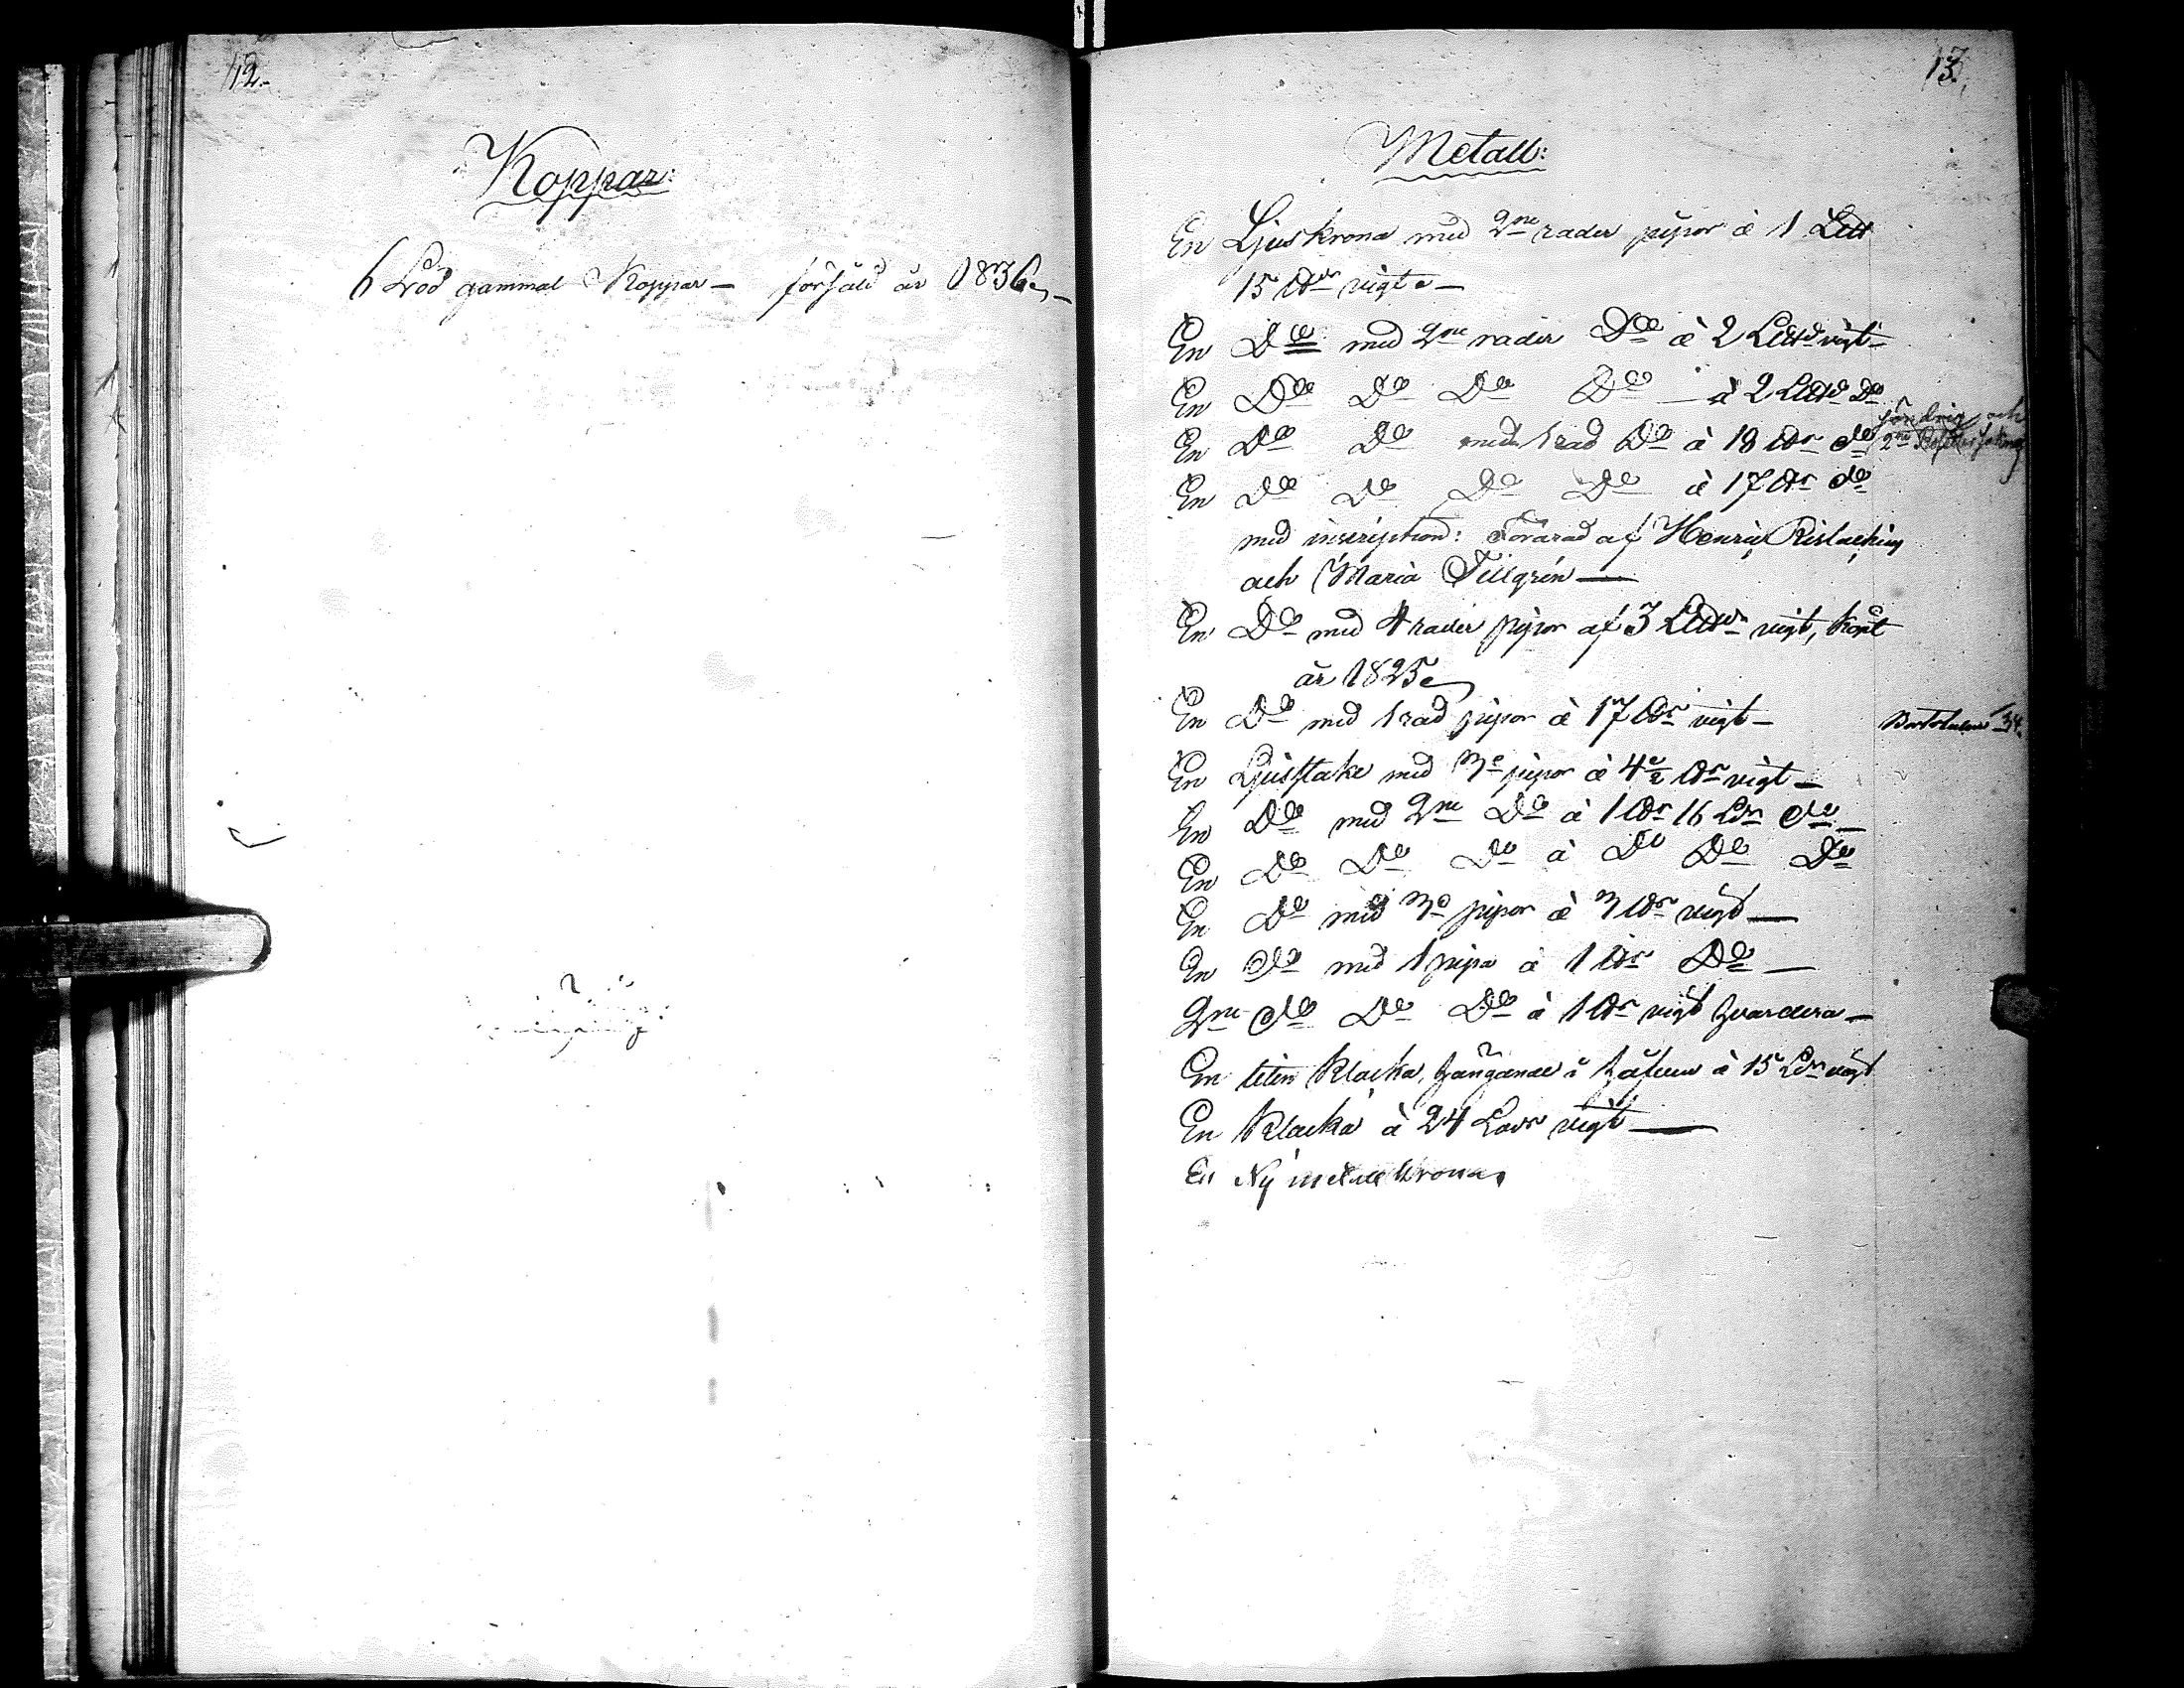 12.
Koppar:
6 Lod gammal Koppar — försåld år 1836. —
13.
Metall:
En Ljuskrona med 2ne rader pipor à 1 L℔
15 ℔r vigt. —
En Do med 2ne rader Do à 2 L℔ vigt —
En Do Do Do Do — à 2 L℔ Do
En Do Do med 1 rad Do à 18 ℔r do
och
2ne
En Do Do Do Do à 17 ℔r do
med inscription: Förärad af Henric Rislachius
och Maria Tillgrén —
En Do med 4 rader pipor af 3 L℔ vigt, köpt
år 1825.
En Do med 1 rad pipor à 17 ℔r vigt —
Bortstulen 34.
En Ljusstake med 3e pipor à 4 1/2 ℔r vigt —
En Do med 2ne Do à 1 ℔r 16 Ldr do —
En Do Do Do à Do Do Do
En Do med 3e pipor à 3 ℔r vigt —
En do med 1 pipa à 1 ℔r Do —
2ne do Do Do à 1 ℔r vigt hvardera —
En liten Klocka, hängande i håfven à 15 Ldr vigt
En Klocka à 24 Lodr vigt —
En Ny metall krona.